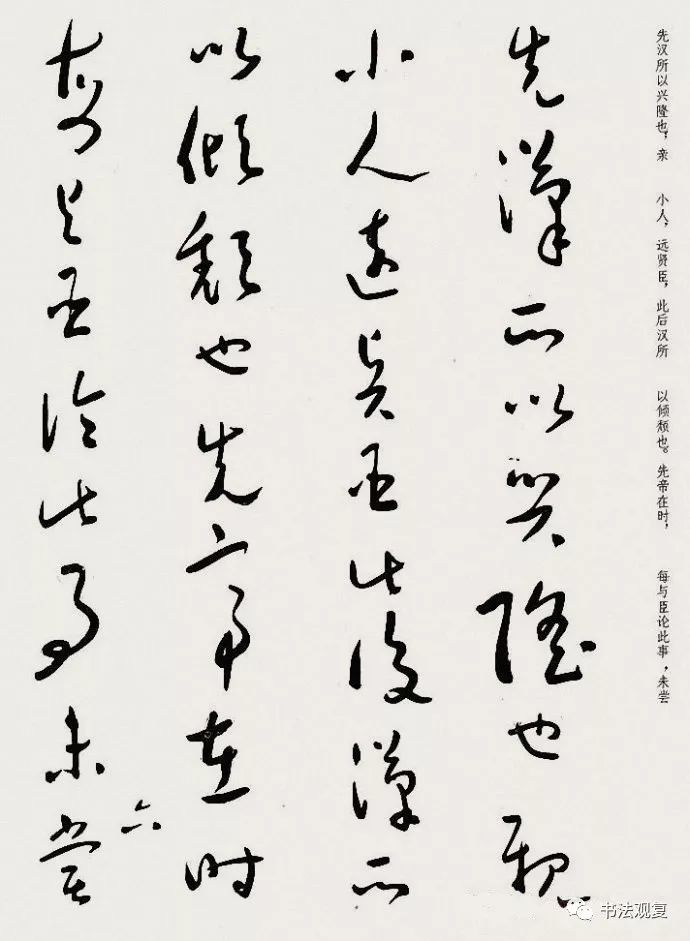 先汉所以兴隆也，亲
小人，远贤臣，此后汉所
以倾颓也。先帝在时，
每与臣论此事，未尝
先漢所以興隆也親
小人遠賢臣此後漢所
以傾頹也先帝在時
每與臣論此事未嘗
六
书法观复